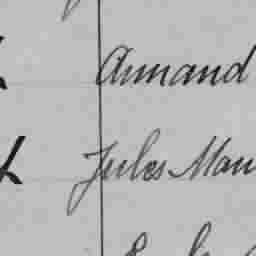 Armand
Jules Mau